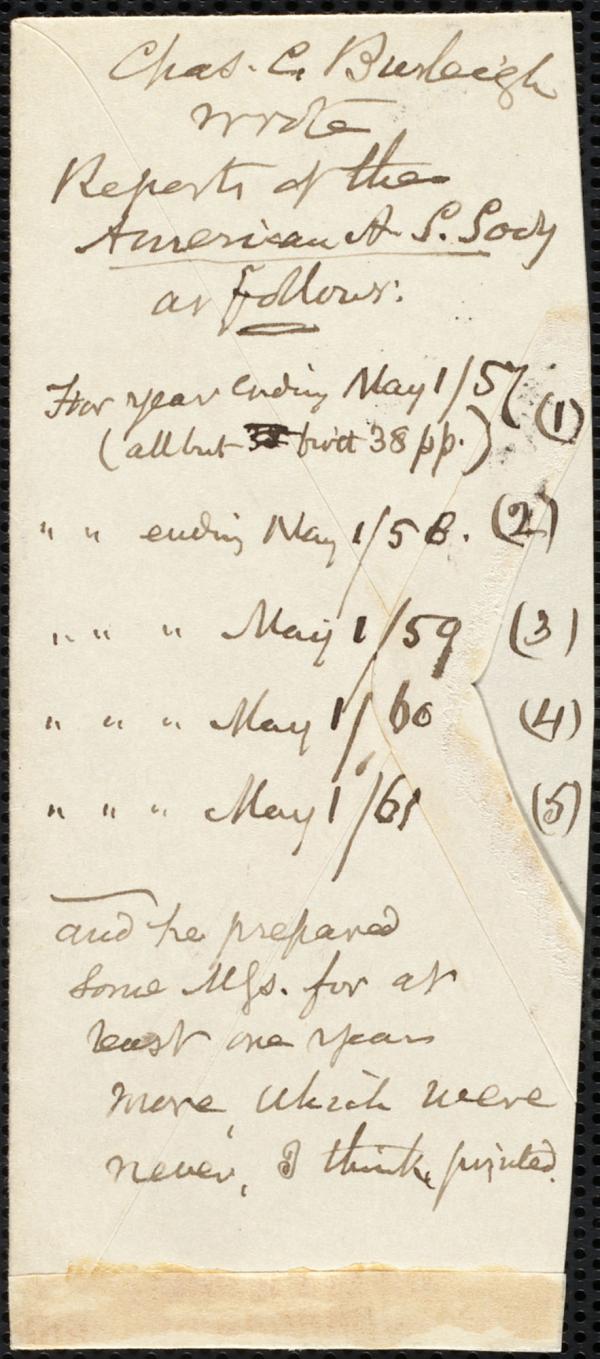 Chas. C. Burleigh
wrote
Reports of the
American A. S. Socy
as follows:
For year ending May 1/57 (1)
(all but first 38 pp.)
" " ending May 1/58. (2)
" " " May 1/59 (3)
" " " May 1/60 (4)
" " " May 1/61 (5)
and he prepared
some Mss. for at
least one year
more, which were
never, I think, printed.